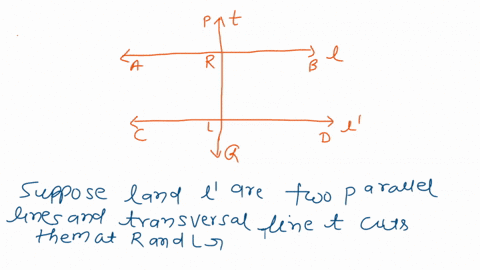 P t
A R B l
C L D l'
Q
Suppose l and l' are two parallel
lines and transversal line t cuts
them at R and L